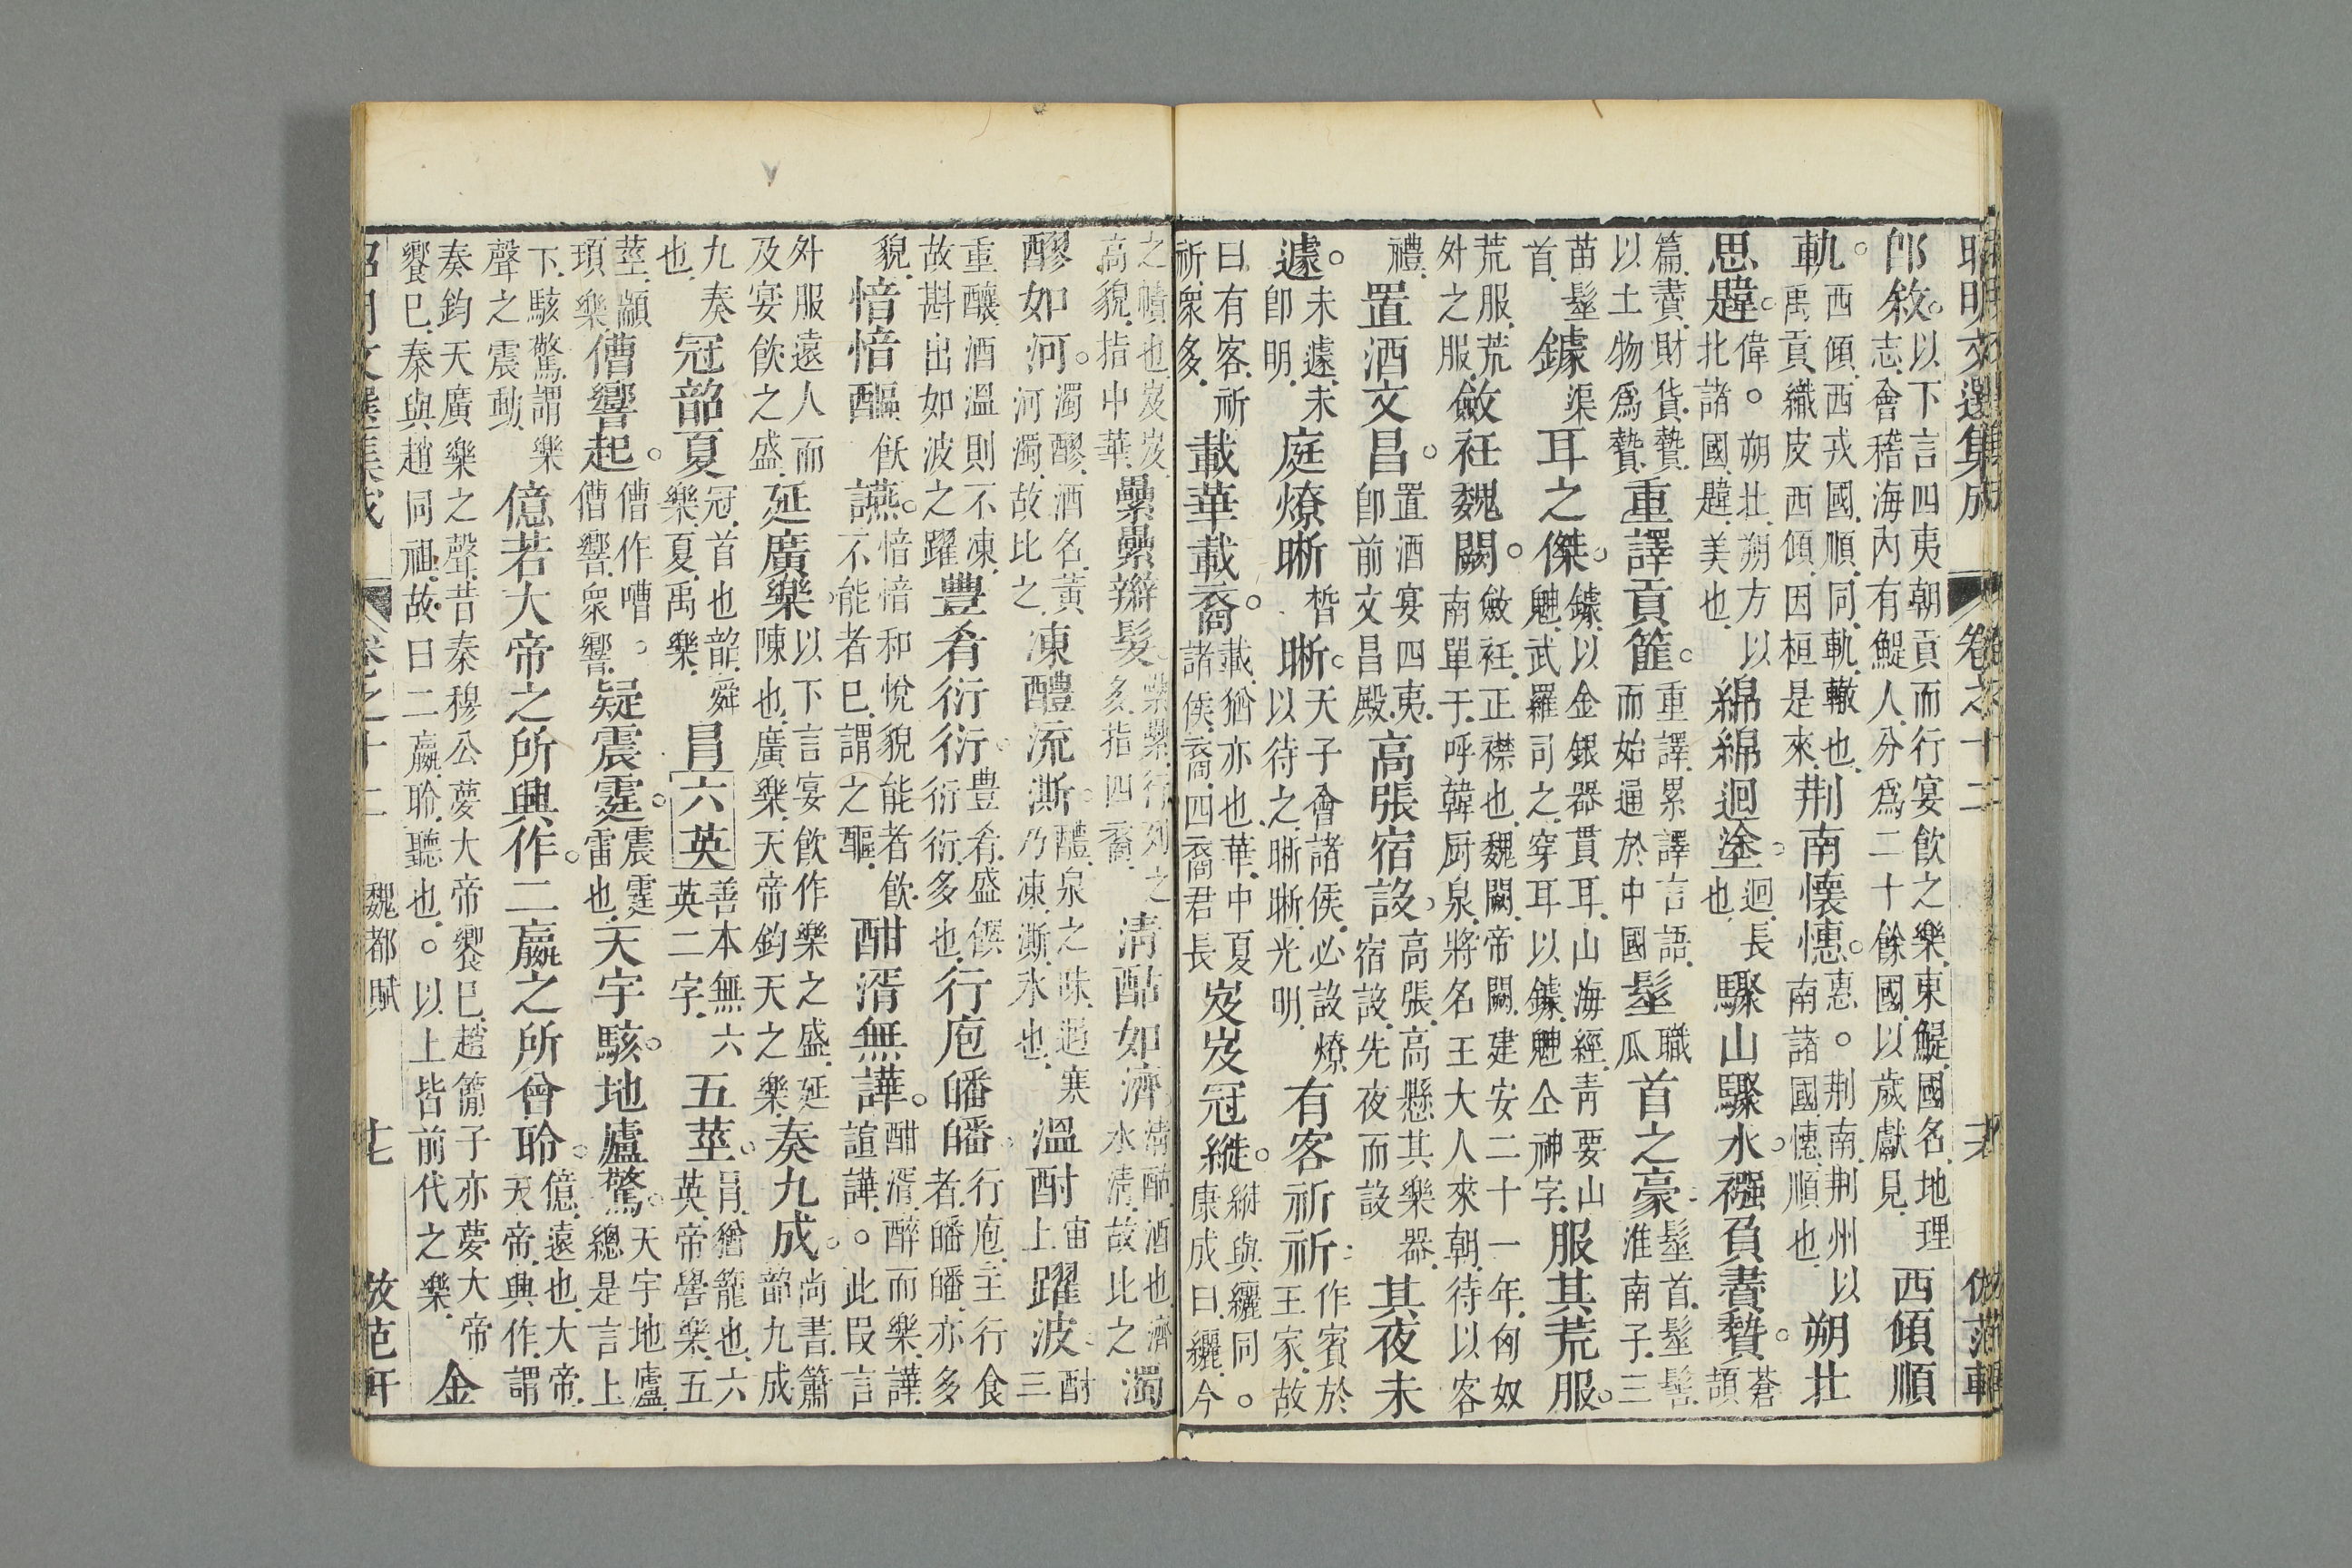 昭明文選集成 卷之十二 倣范軒
卽敘。以下言四夷朝貢而行宴飲之樂東鯷國名地理志會稽海內有鯷人分爲二十餘國以歲獻見 西傾順
軌。西傾西戎國順同軌轍也禹貢織皮西傾因桓是來 荆南懷憓。惠。荆南荆州以南諸國憓順也 朔北
思韙。偉。朔北朔方以北諸國韙美也 綿綿迥塗。迥長也 驟山驟水。襁負賮贄。蒼頡
篇賮財貨贄以土物爲贄 重譯貢篚。重譯累譯言語而始通於中國 髽職瓜首之豪。髽首髽髻淮南子三
苗髽首 鐻渠耳之傑。鐻以金銀器貫耳山海經青要山魁武羅司之穿耳以鐻魁仝神字 服其荒服。
荒服荒外之服 斂衽魏闕。斂衽正襟也魏闕帝闕建安二十一年匈奴南單于呼韓厨泉將名王大人來朝待以客
禮 置酒文昌。置酒宴四夷卽前文昌殿 高張宿設。高張高懸其樂器宿設先夜而設 其夜未
遽。未遽未卽明 庭燎晣晳晣。天子會諸侯必設燎以待之晣晣光明 有客祈祈。作賓於王家故
曰有客祈祈衆多 載華載裔。載猶亦也華中夏諸侯裔四裔君長 岌岌冠縰。縰與纚同。康成曰纚今
之幘也岌岌高貌指中華 纍纍辮髮 纍纍行列之多指四裔 清酤如濟 清酤酒也濟水清故比之 濁
醪如河。濁醪酒名黃河濁故比之 凍醴流澌。醴泉之味遇寒乃凍澌氷也 溫酎宙上躍波。酎三
重釀酒溫則不凍故斟出如波之躍 豐肴衍衍。豊肴盛饌衍衍多也 行庖皤皤。行庖主行食者皤皤亦多
貌 愔愔醧飫讌。愔愔和悅貌能者飲不能者已謂之醧 酣湑無譁。酣湑醉而樂譁諠譁。此叚言
外服遠人而及宴飲之盛 延廣樂。以下言宴飲作樂之盛延陳也廣樂天帝鈞天之樂 奏九成。尚書簫韶九成
九奏也 冠韶夏 冠首也韶舜樂夏禹樂 冒六英 善本無六英二字 五莖。冒猶籠也六英帝嚳樂五
莖顓頊樂 傮響起。傮作嘈。傮響衆響 疑震霆。震霆雷也 天宇駭。地廬驚。天宇地廬總是言上
下駭驚謂樂聲之震動 億若大帝之所興作。二嬴之所曾聆。億遠也大帝天帝興作謂
奏鈞天廣樂之聲昔秦穆公夢大帝饗已趙簡子亦夢大帝饗已秦與趙同祖故曰二嬴聆聽也。以上皆前代之樂 金
昭明文選集成 卷之十二 魏都賦 十七 倣范軒